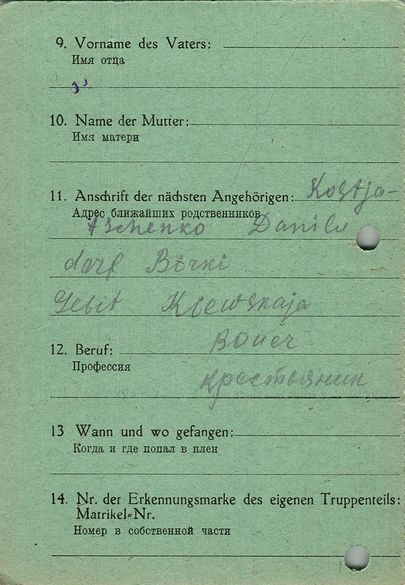 9. Vorname des Vaters:
Имя отца
10. Name der Mutter:
Имя матери
11. Anschrift der nächsten Angehörigen: Kostja-
Адрес ближайших родственников
tschenko Danilu
dorf Borki
Gebit Kiewskaja
12. Beruf: Bauer
Профессия крестьянин
13 Wann und wo gefangen:
Когда и где попал в плен
14. Nr. der Erkennungsmarke des eigenen Truppenteils:
Matrikel=Nr.
Номер в собственной части